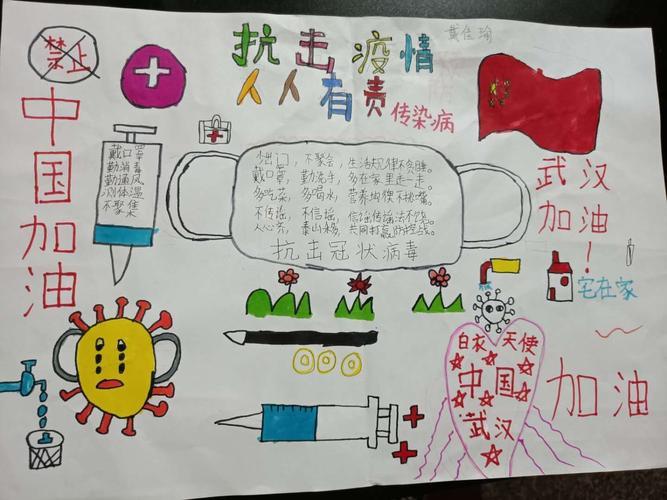 禁止
抗击疫情
人人有责
传染病
黄佳瑜
中国加油
戴口罩
勤消毒
勤通风
测体温
不聚集
少出门，不聚会，生活规律不贪睡。
戴口罩，勤洗手，多在家里走一走。
多吃菜，多喝水，营养均衡不挑嘴。
不传谣，不信谣，信谣传谣法不饶。
人心齐，泰山移，共同打赢防控战。
抗击冠状病毒
武汉
加油！
宅在家
白衣天使
中国
武汉
加油